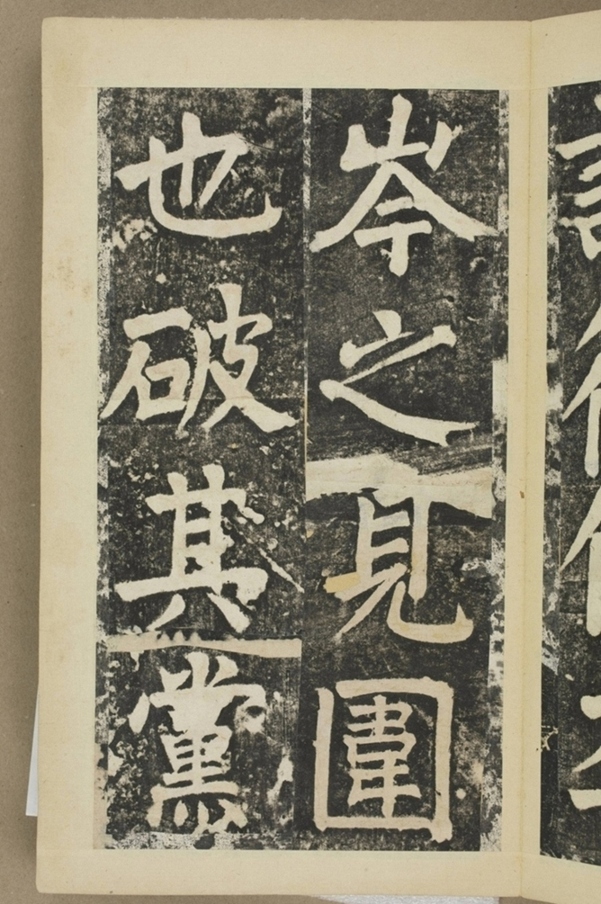 岑之見圍
也破其黨